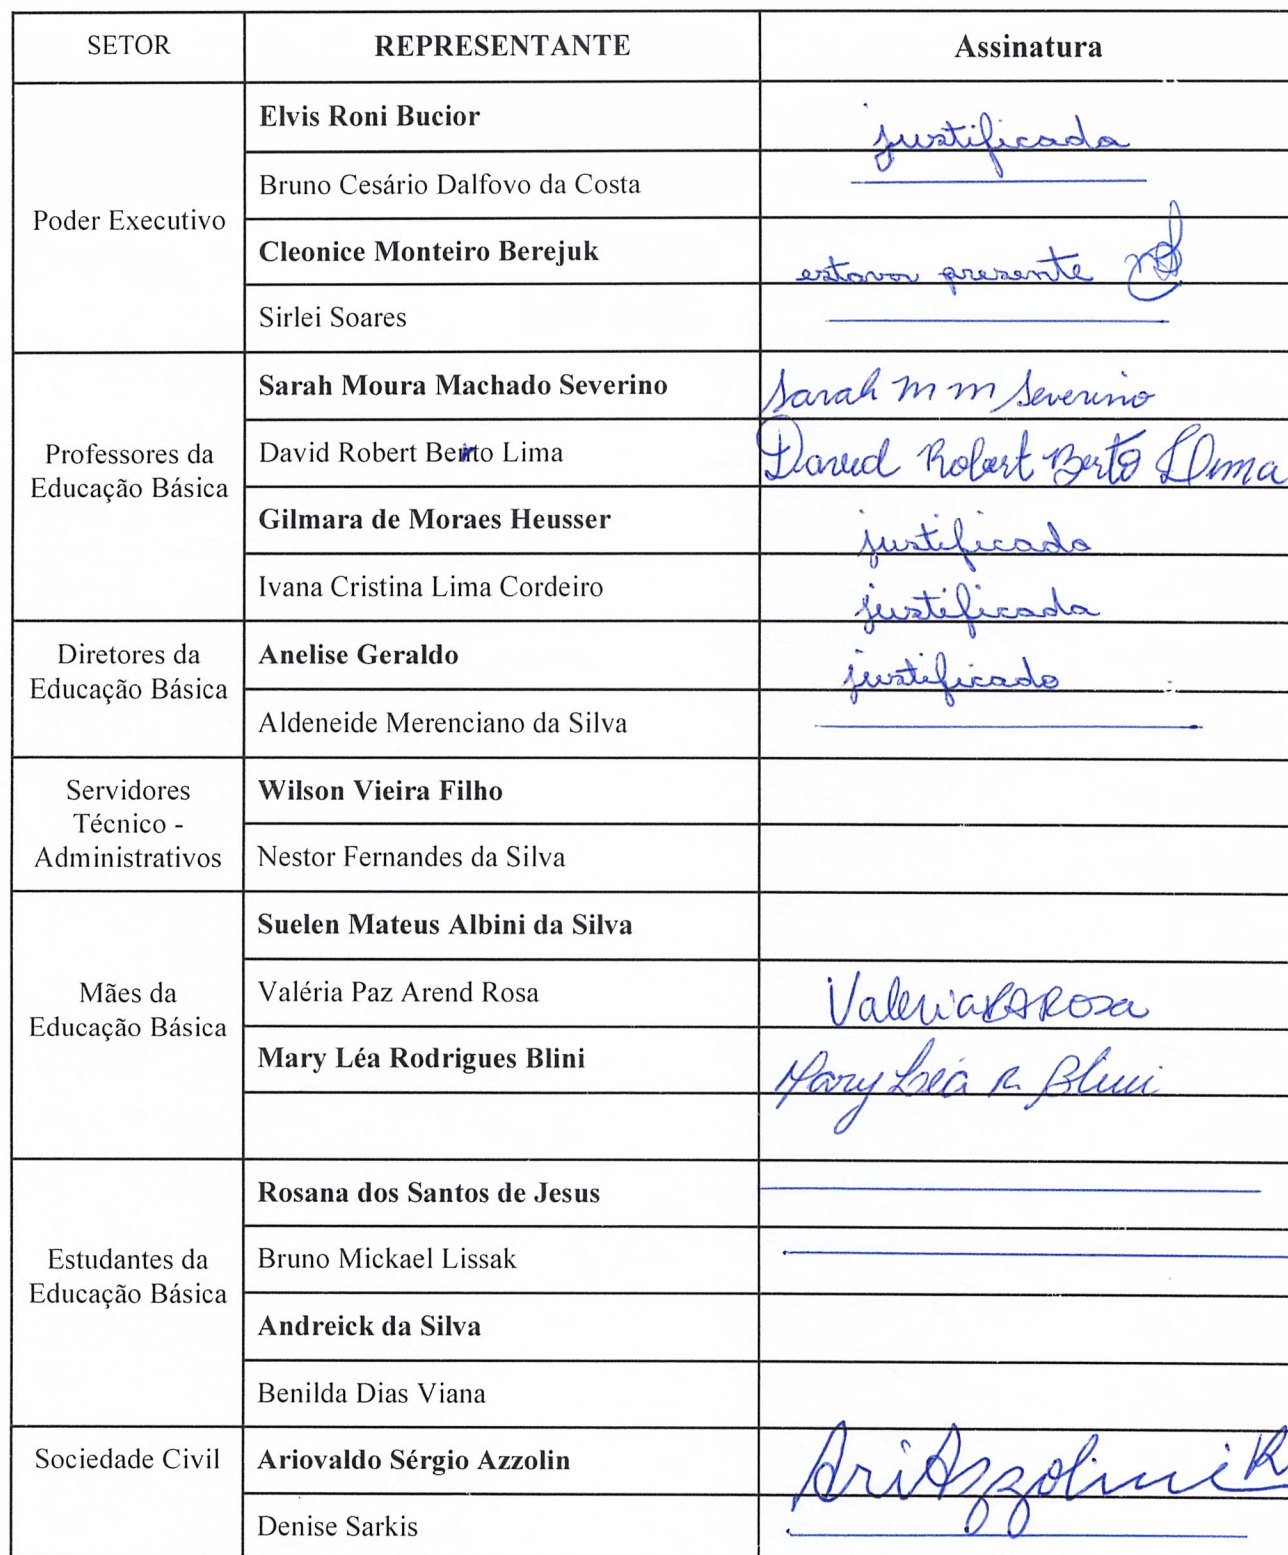 SETOR REPRESENTANTE Assinatura
Poder Executivo
Elvis Roni Bucior justificada
Bruno Cesário Dalfovo da Costa
Cleonice Monteiro Berejuk estava presente
Sirlei Soares
Professores da
Educação Básica
Sarah Moura Machado Severino Sarah M M Severino
David Robert Berto Lima David Robert Berto Lima
Gilmara de Moraes Heusser justificada
Ivana Cristina Lima Cordeiro justificada
Diretores da
Educação Básica
Anelise Geraldo justificado
Aldeneide Merenciano da Silva
Servidores
Técnico -
Administrativos
Wilson Vieira Filho
Nestor Fernandes da Silva
Mães da
Educação Básica
Suelen Mateus Albini da Silva
Valéria Paz Arend Rosa Valeria PA Rosa
Mary Léa Rodrigues Blini Mary Léa R Blini
Estudantes da
Educação Básica
Rosana dos Santos de Jesus
Bruno Mickael Lissak
Andreick da Silva
Benilda Dias Viana
Sociedade Civil
Ariovaldo Sérgio Azzolin Ari Azzolin
Denise Sarkis